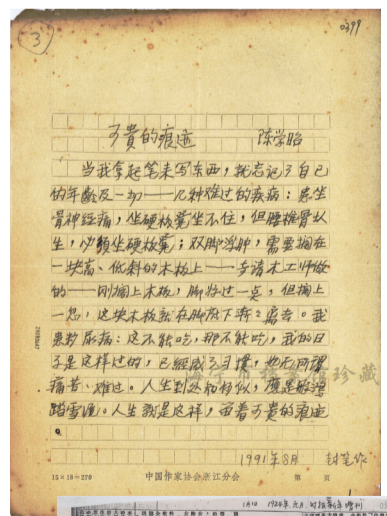 3
0399
可貴的痕迹
陈学昭
当我拿起笔来写东西,就忘记了自己
的年龄及一切——几种难过的疾病:患坐
骨神经痛,坐硬板凳坐不住,但腰椎骨质
生,必须坐硬板凳;双脚浮肿,需要搁在
一块高、低斜的木板上——专请木工师做
的——刚搁上木板,脚好过一点,但搁上
一忽,这块木板就在脚底下
患糖尿病:这不能吃,那不能吃,我的日
子是这样过的,已经成了习惯,也无所谓
痛苦、难过。人生到处
踏雪泥。人生就是这样,留着可贵的痕迹
。
1991年8月 封笔作
15×18=270
中国作家协会浙江分会
第 页
海宁市档案馆珍藏